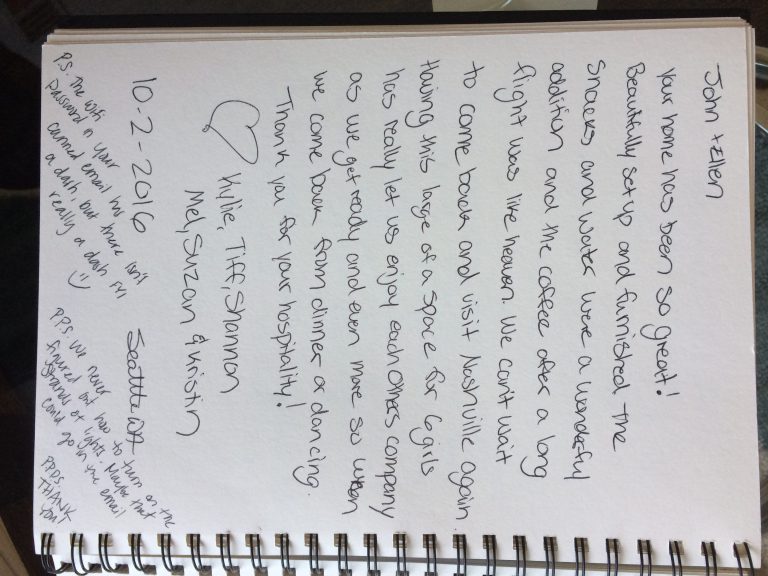 John + Ellen
Your home has been so great!
Beautifully set up and furnished. The
snacks and water were a wonderful
addition and the coffee after a long
flight was like heaven. We can't wait
to come back and visit Nashville again.
Having this large of a space for 6 girls
has really let us enjoy each others company
as we get ready and even more so when
we come back from dinner or dancing.
Thank you for your hospitality!
Kylie, Tiff, Shannon
Mel, Suzan & Kristin
10-2-2016 Seattle WA
P.S. The wifi
password in your
canned email has
a dash, but there isn't
really a dash FYI
PPS We never
figured out how to turn on the
strands of lights. Maybe that
could go in the email
PPPS.
THANK
YOU